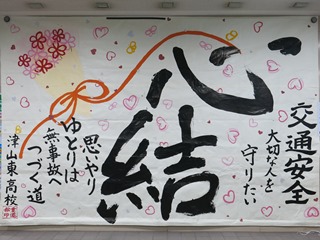 交通安全
大切な人を
守りたい
心結
思いやり
ゆとりは
無事故へ
つづく道
津山東高校